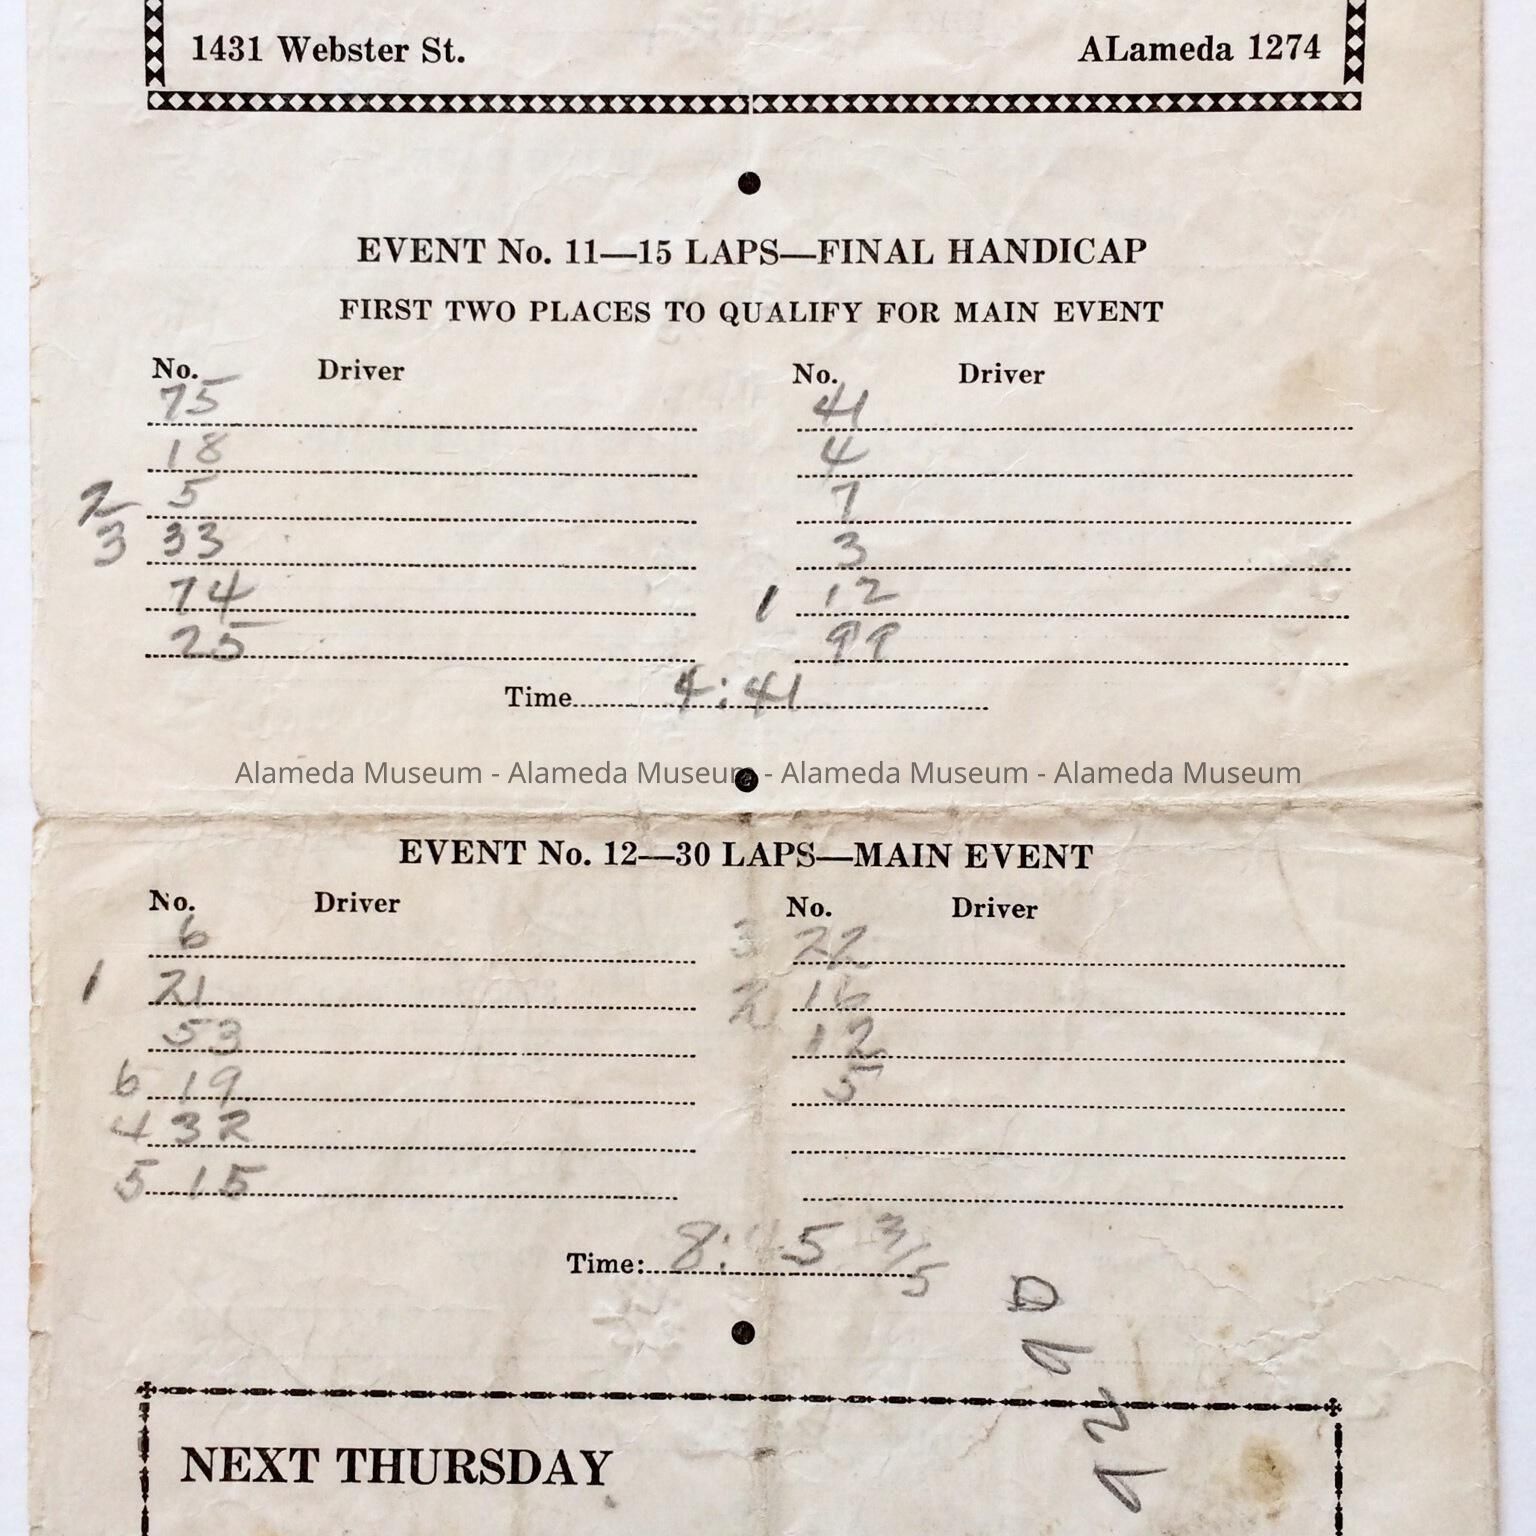 1431 Webster St. ALameda 1274
EVENT No. 11—15 LAPS—FINAL HANDICAP
FIRST TWO PLACES TO QUALIFY FOR MAIN EVENT
No. Driver No. Driver
75 41
18 4
2 5 7
3 33 3
74 1 12
25 99
Time 4:41
Alameda Museum - Alameda Museum - Alameda Museum - Alameda Museum
EVENT No. 12—30 LAPS—MAIN EVENT
No. Driver No. Driver
6 3 22
1 21 2 16
53 12
6 19 5
4 32
5 15
Time: 8: 5 3/5
NEXT THURSDAY